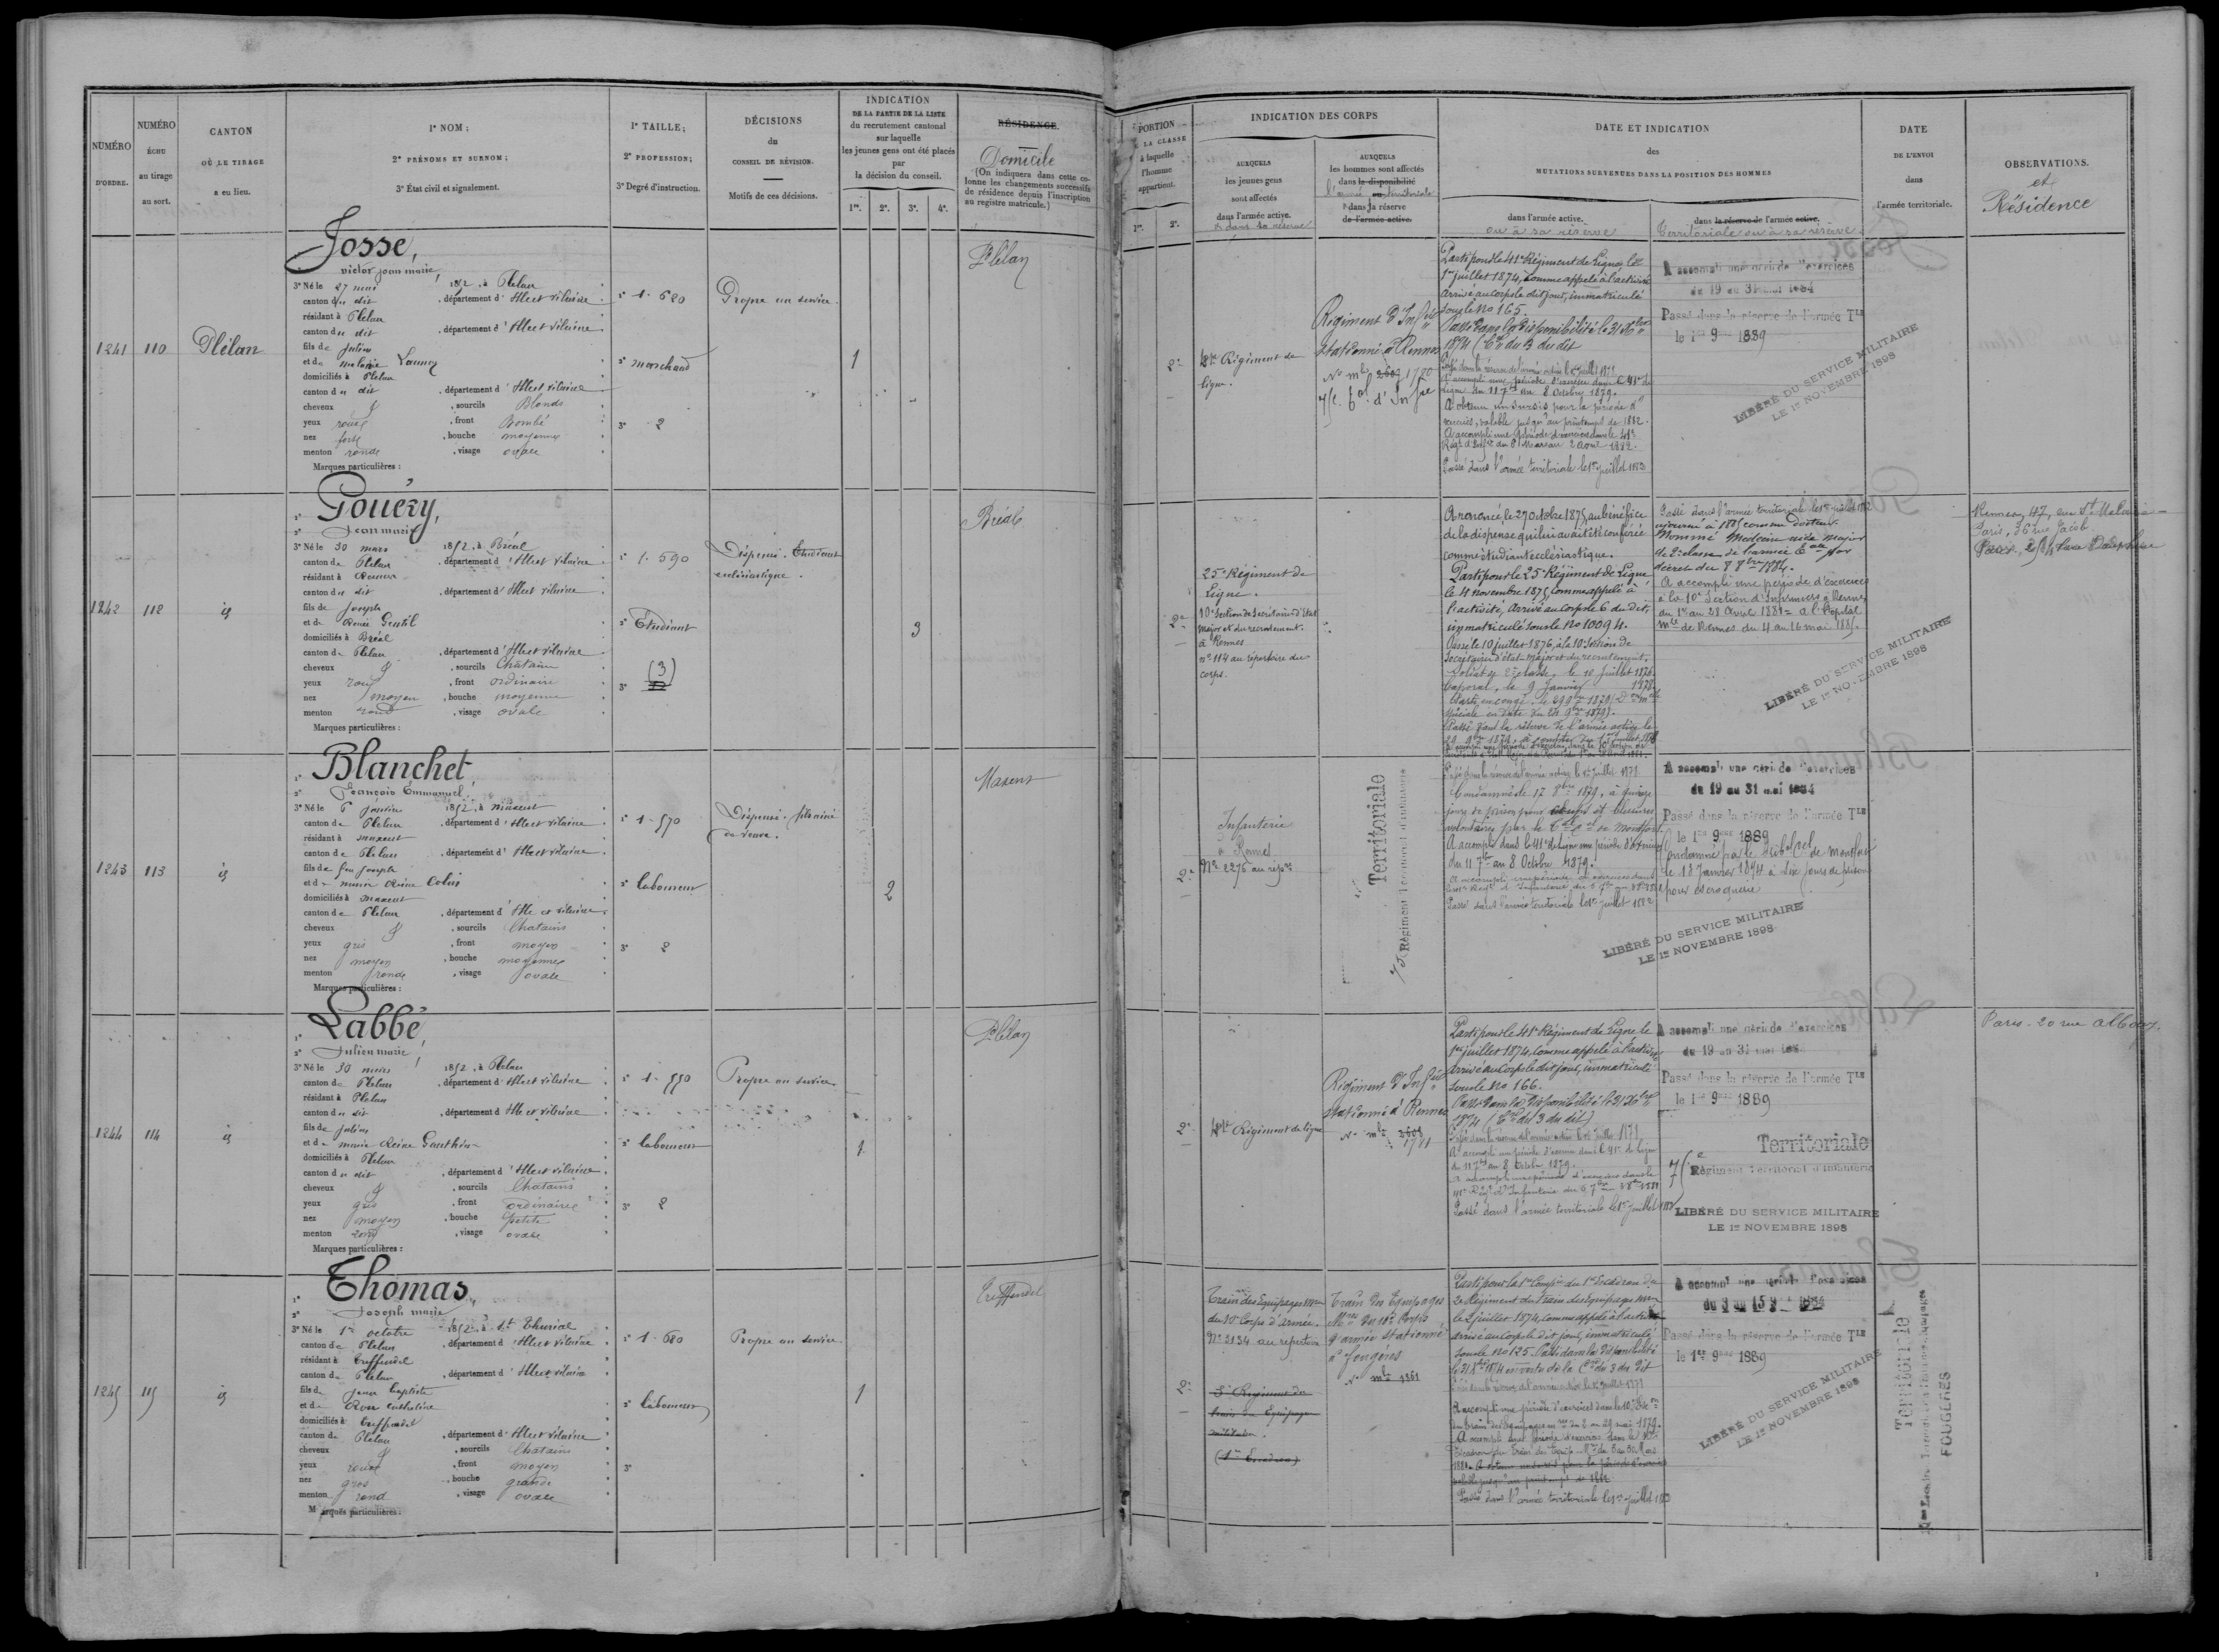 NUMÉRO
D'ORDRE.
NUMÉRO
ÉCHU
au tirage
au sort.
CANTON
OÙ LE TIRAGE
a eu lieu.
1° NOM ;
2° PRÉNOMS ET SURNOM ;
3° État civil et signalement.
1° TAILLE ;
2° PROFESSION ;
3° Degré d'instruction.
DÉCISIONS
du
CONSEIL DE RÉVISION.
Motifs de ces décisions.
INDICATION
DE LA PARTIE DE LA LISTE
du recrutement cantonal
sur laquelle
les jeunes gens ont été placés
par
la décision du conseil.
1re. 2e. 3e. 4e.
RÉSIDENCE.
Domicile
(On indiquera dans cette co-
lonne les changements successifs
de résidence depuis l'inscription
au registre matricule.)
1241
110
Plélan
Josse,
victor jean marie
3° Né le 27 mai 1852, à Plélan
canton du dit, département d'Ille et vilaine
résidant à Plélan
canton du dit, département d'Ille et vilaine
fils de julien
et de melanie Launay
domiciliés à Plélan
canton du dit, département d'Ille et vilaine
cheveux &, sourcils Blonds
yeux roux, front Bombé
nez fort, bouche moyenne
menton ronde, visage ovale
Marques particulières :
1° 1.680
2° marchand
3° 2
Propre au service
1
Plélan
1242
112
id
Gouéry,
2° Jean marie
3° Né le 30 mars 1852, à Bréal
canton de Plélan, département d'Ille et vilaine
résidant à Rennes
canton du dit, département d'Ille et vilaine
fils de Joseph
et de Renée Gentil
domiciliés à Bréal
canton de Plélan, département d'Ille et vilaine
cheveux &, sourcils Chatains
yeux roux, front ordinaire
nez moyen, bouche moyenne
menton rond, visage ovale
Marques particulières :
1° 1.590
2° Etudiant
3° (3)
Dispensé. Etudiant
ecclésiastique.
3
Bréal
1243
113
id
Blanchet,
2° François Emmanuel
3° Né le 6 janvier 1852, à maxent
canton de Plélan, département d'Ille et vilaine
résidant à maxent
canton de Plélan, département d'Ille et vilaine
fils de feu joseph
et de marie Reine Colin
domiciliés à maxent
canton de Plélan, département d'Ille et vilaine
cheveux &, sourcils Chatains
yeux gris, front moyen
nez moyen, bouche moyenne
menton ronde, visage ovale
Marques particulières :
1° 1.570
2° laboureur
3° 2
Dispensé. fils aîné
de veuve.
2
Maxent
1244
114
id
Labbé,
2° Julien marie
3° Né le 30 mars 1852, à Plélan
canton de Plélan, département d'Ille et vilaine
résidant à Plélan
canton du dit, département d'Ille et vilaine
fils de julien
et de marie Reine Gauthier
domiciliés à Plélan
canton du dit, département d'Ille et vilaine
cheveux &, sourcils Chatains
yeux gris, front ordinaire
nez moyen, bouche petite
menton rond, visage ovale
Marques particulières :
1° 1.550
2° laboureur
3° 2
Propre au service
1
Plélan
1245
115
id
Thomas,
2° Joseph marie
3° Né le 1er octobre 1852, à St Thurial
canton de Plélan, département d'Ille et vilaine
résidant à Treffendel
canton de Plélan, département d'Ille et vilaine
fils de Jean baptiste
et de Rose catherine
domiciliés à Treffendel
canton de Plélan, département d'Ille et vilaine
cheveux &, sourcils Chatains
yeux roux, front moyen
nez gros, bouche grande
menton rond, visage ovale
Marques particulières :
1° 1.680
2° laboureur
3°
Propre au service
1
Treffendel
PORTION
DE LA CLASSE
à laquelle
l'homme
appartient.
1re. 2e.
INDICATION DES CORPS
AUXQUELS
les jeunes gens
sont affectés
dans l'armée active.
& dans sa réserve
AUXQUELS
les hommes sont affectés
dans la disponibilité
l'armée territoriale
& dans sa réserve
de l'armée active.
DATE ET INDICATION
des
MUTATIONS SURVENUES DANS LA POSITION DES HOMMES
dans l'armée active.
ou à sa réserve
dans la réserve de l'armée active.
Territoriale ou à sa réserve
DATE
DE L'ENVOI
dans
l'armée territoriale.
OBSERVATIONS.
et
Résidence
2e
41e Régiment de
ligne.
Régiment d'Infie
stationné à Rennes
No mle 1720
75e d'Infie
Parti pour le 41e Régiment de Ligne le
1er juillet 1874, comme appelé à l'activité
Arrivé au corps le dit jour, immatriculé
sous le No 165.
Passé dans la disponibilité le 31 Xbre
1874 (Cre du 3 du dit
Passé dans la réserve de l'armée active le 1er juillet 1879
A accompli une période d'exercices dans le 41e de
Ligne du 11 7bre au 8 Octobre 1879.
A obtenu un sursis pour la période d'
exercices, valable jusqu'au printemps de 1882.
A accompli une période d'exercices dans le 41e
Régt d'Infie du 6 Mars au 2 Avril 1882.
Passé dans l'armée territoriale le 1er juillet 1883
A accompli une période d'exercices
du 19 au 31 mai 1884
Passé dans la réserve de l'armée Tle
le 1er 9bre 1889
LIBÉRÉ DU SERVICE MILITAIRE
LE 1er NOVEMBRE 1898
2e
25e Régiment de
Ligne.
10e Section de Secrétaires d'Etat
Major et du recrutement.
à Rennes
no 114 au répertoire du
corps.
A renoncé, le 27 octobre 1875, au bénéfice
de la dispense qui lui avait été conférée
comme étudiant ecclésiastique.
Parti pour le 25e Régiment de Ligne
le 4 novembre 1875, comme appelé à
l'activité, Arrivé au corps le 6 du dit,
immatriculé sous le No 10094.
Passé le 10 juillet 1876, à la 10e Section de
Secrétaires d'état-major et du recrutement,
Soldat de 2e classe, le 10 Juillet 1876.
Caporal, le 9 Janvier 1878.
Passé dans la réserve de l'armée active le
Passé dans l'armée territoriale le 1er juillet 1882
ajourné à 1885 comme Docteur.
Nommé Médecin aide major
de 2e classe de l'armée Tale par
décret du 8 8bre 1884.
A accompli une période d'exercices
à la 10e Section d'Infirmiers à Rennes,
du 1er au 28 Avril 1881 = à l'hopital
mle de Rennes du 4 au 16 mai 1885.
LIBÉRÉ DU SERVICE MILITAIRE
LE 1er NOVEMBRE 1898
Rennes, 47, rue St Malo
Paris, 36 rue Jacob
2e
Infanterie
à Rennes
No 2276 au repre
75e Régiment Territorial d'infanterie
Territoriale
Passé dans la réserve de l'armée active le 1er juillet 1879
Condamné le 17 Xbre 1879, à quinze
jours de prison pour coups et blessures
volontaires par le Tal Cel de Montfort
A accompli dans le 41e de Ligne une période d'exercices
du 11 7bre au 8 Octobre 1879.
Passé dans l'armée territoriale le 1er juillet 1882
A accompli une période d'exercices
du 19 au 31 mai 1884
Passé dans la réserve de l'armée Tle
le 1er 9bre 1889
Condamné par le tribal Cel de montfort
le 18 Janvier 1894 à dix jours de prison
pour escroquerie
LIBÉRÉ DU SERVICE MILITAIRE
LE 1er NOVEMBRE 1898
2e
41e Régiment de ligne
Régiment d'Infie
stationné à Rennes
No mle 1781
Parti pour le 41e Régiment de Ligne le
1er juillet 1874, comme appelé à l'activité
Arrivé au corps le dit jour, immatriculé
sous le No 166.
Passé dans la disponibilité le 31 Xbre
1874 (Cre du 3 du dit)
Passé dans la réserve de l'armée active le 1er juillet 1879
A accompli une période d'exercices dans le 41e de Ligne
du 11 7bre au 8 Octobre 1879.
A accompli une période d'exercices dans le
41e Régt d'Infanterie du 6 7bre au 3 8bre 1881
Passé dans l'armée territoriale le 1er juillet 1883
A accompli une période d'exercices
du 19 au 31 mai 188
Passé dans la réserve de l'armée Tle
le 1er 9bre 1889
Territoriale
75e Régiment Territorial d'infanterie
LIBÉRÉ DU SERVICE MILITAIRE
LE 1er NOVEMBRE 1898
Paris. 20 rue Albouy.
2e
Train des Equipages Mres
du 10e Corps d'armée.
No 2134 au repertoire
3e Régiment du
train des Equipages
militaires.
(1er Escadron)
Train des Equipages
Mres du 10e Corps
d'armée stationné
à fougères
No mle 1361
Parti pour la 1re Compie du 1er Escadron du
2e Régiment du Train des Equipages Mres
le 2 juillet 1874, comme appelé à l'activité
Arrivé au corps le dit jour, immatriculé
sous le No 125. Passé dans la disponibilité
le 31 Xbre 1874 en vertu de la Cre du 3 du dit
Passé dans la réserve de l'armée active le 1er juillet 1879
Passé dans l'armée territoriale le 1er juillet 1883
A accompli une période d'exercices
Passé dans la réserve de l'armée Tle
le 1er 9bre 1889
LIBÉRÉ DU SERVICE MILITAIRE
LE 1er NOVEMBRE 1898
Territoriale
FOUGERES